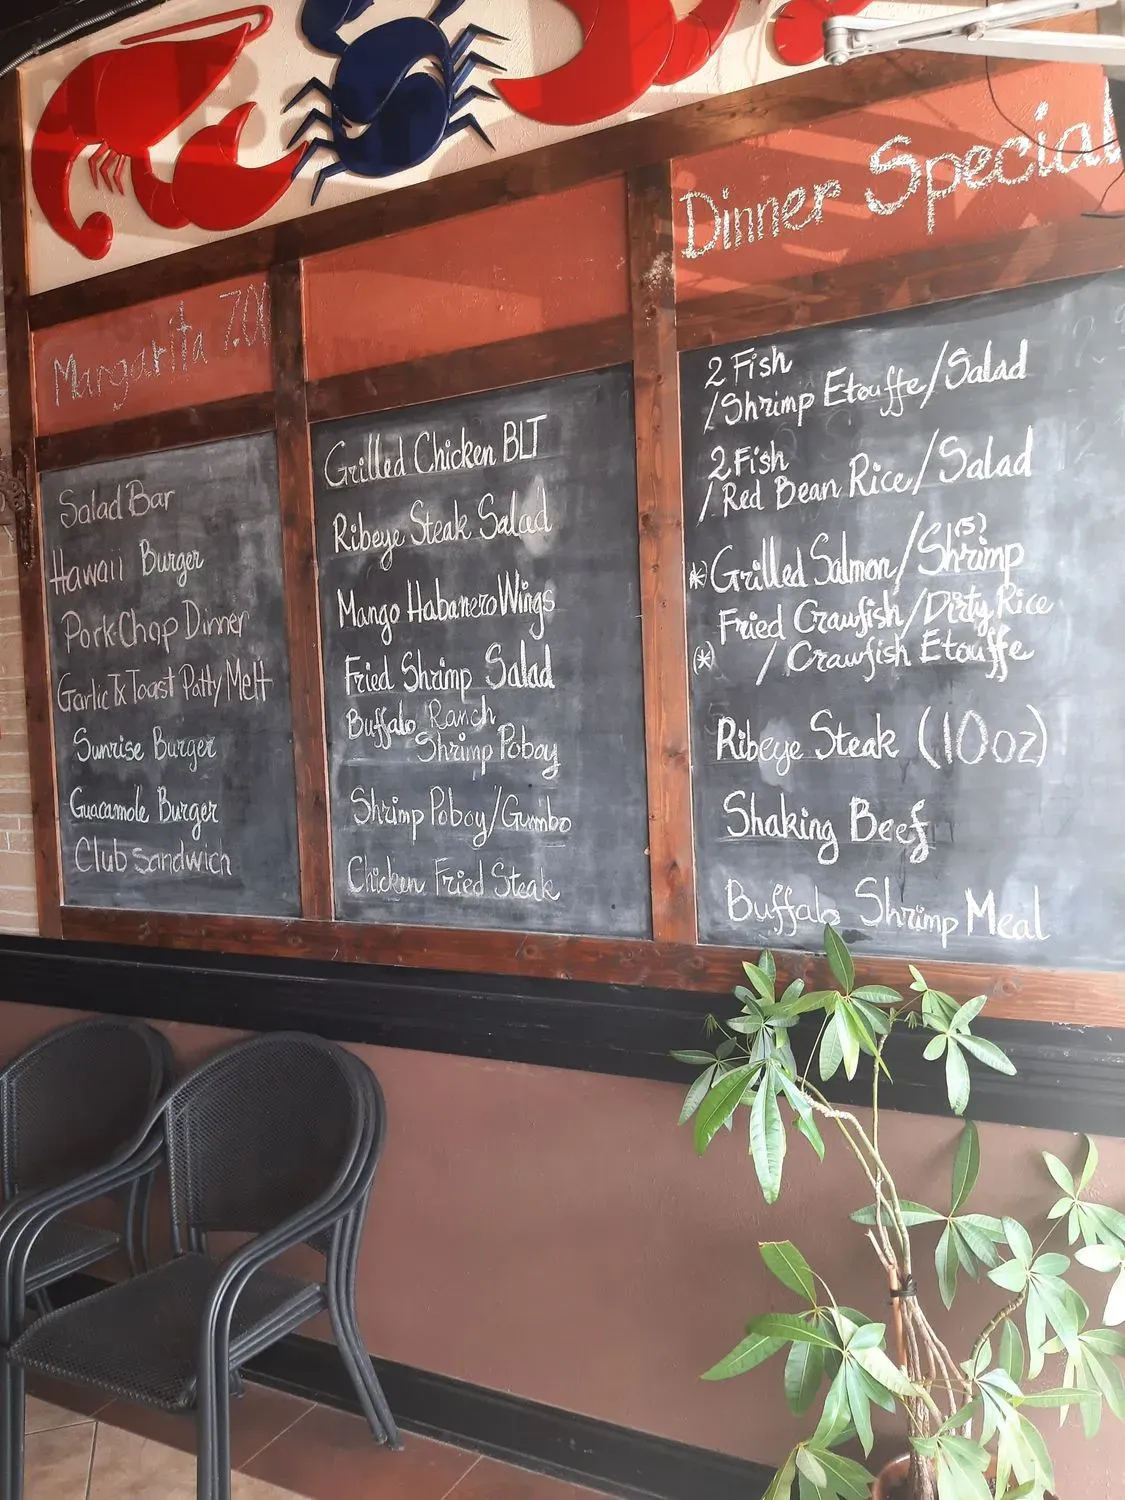 Margarita 7.00
Salad Bar
Hawaii Burger
Pork Chop Dinner
Garlic Tx Toast Patty Melt
Sunrise Burger
Guacamole Burger
Club Sandwich
Grilled Chicken BLT
Ribeye Steak Salad
Mango Habanero Wings
Fried Shrimp Salad
Buffalo Ranch
Shrimp Poboy
Shrimp Poboy/Gumbo
Chicken Fried Steak
Dinner Special
2 Fish
/Shrimp Etouffe/Salad
2 Fish
/Red Bean Rice/Salad
(5)
*Grilled Salmon/Shrimp
Fried Crawfish/Dirty Rice
(*) / Crawfish Etouffe
Ribeye Steak (10oz)
Shaking Beef
Buffalo Shrimp Meal